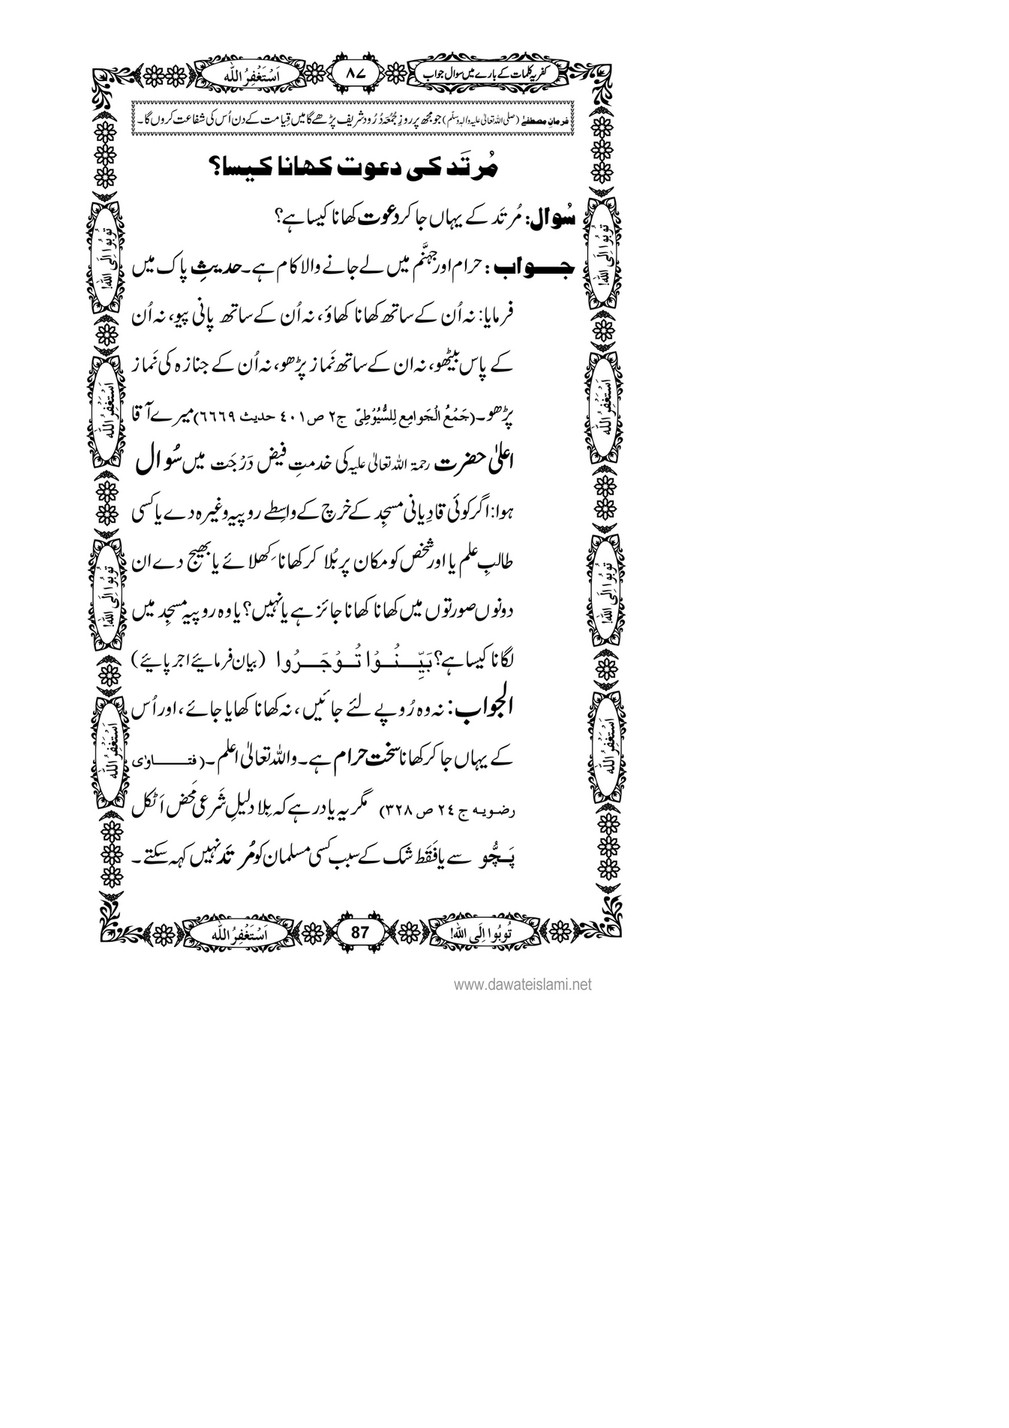 کفریہ کلمات کے بارے میں سوال جواب ۸۷ اَسْتَغْفِرُ اللّٰه
فرمانِ مصطفٰے (صلی اللہ تعالیٰ علیہ والہ وسلم) جو مجھ پر روزِ جُمُعہ دُرُود شریف پڑھے گا میں قِیامت کے دن اُس کی شفاعت کروں گا۔
مُرتَد کی دعوت کھانا کیسا؟
سُوال: مُرتَد کے یہاں جا کر دعوت کھانا کیسا ہے؟
جواب: حرام اور جہنَّم میں لے جانے والا کام ہے۔ حدیثِ پاک میں
فرمایا: نہ اُن کے ساتھ کھانا کھاؤ، نہ اُن کے ساتھ پانی پیو، نہ اُن
کے پاس بیٹھو، نہ ان کے ساتھ نَماز پڑھو، نہ اُن کے جنازہ کی نَماز
پڑھو۔ (جَمْعُ الْجَوامِع لِلسُّیُوْطِیّ ج۲ ص۴۰۱ حدیث ۶۶۶۹) میرے آقا
اعلٰی حضرت رحمۃ اللہ تعالیٰ علیہ کی خدمتِ فیض دَرْجَت میں سُوال
ہوا: اگر کوئی قادِیانی مسجِد کے خرچ کے واسِطے روپیہ وغیرہ دے یا کسی
طالبِ علم یا اور شخص کو مکان پر بُلا کر کھانا کھلائے یا بھیج دے ان
دونوں صورتوں میں کھانا کھانا جائز ہے یا نہیں؟ یا وہ روپیہ مسجِد میں
لگانا کیسا ہے؟ بَیِّنُوْا تُوْجَرُوا (بیان فرمائیے اجر پائیے)
الجواب: نہ وہ رُوپے لئے جائیں، نہ کھانا کھایا جائے، اور اُس
کے یہاں جا کر کھانا سخت حرام ہے۔ واللہ تعالیٰ اعلم۔ (فتاوٰی
رضویہ ج۲۴ ص۳۲۸) مگر یہ یاد رہے کہ بِلا دلیلِ شَرعی مَحض اَٹکل
پَچُّو سے یا فَقَط شک کے سبب کسی مسلمان کو مُرتَد نہیں کہہ سکتے۔
تُوبُوا اِلَی اللّٰه!
اَسْتَغْفِرُ اللّٰه
تُوبُوا اِلَی اللّٰه!
اَسْتَغْفِرُ اللّٰه
تُوبُوا اِلَی اللّٰه!
اَسْتَغْفِرُ اللّٰه
تُوبُوا اِلَی اللّٰه!
اَسْتَغْفِرُ اللّٰه
تُوبُوا اِلَی اللّٰه! 87 اَسْتَغْفِرُ اللّٰه
www.dawateislami.net